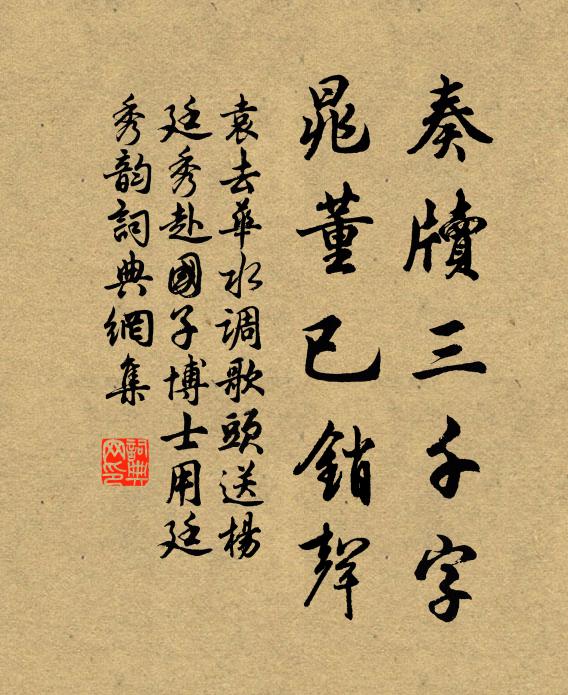 奏牘三千字
晁董已銷聲
袁去華水調歌頭送楊
廷秀赴國子博士用廷
秀韵詞典網集
詞典
网印